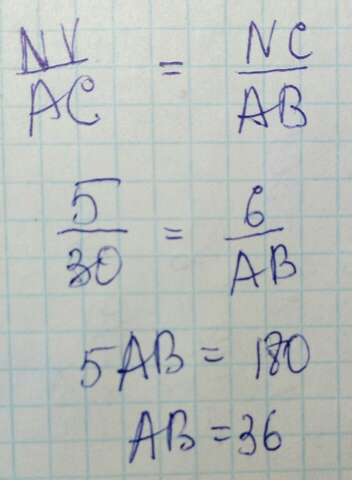 NV/AC = NC/AB
5/30 = 6/AB
5AB = 180
AB = 36